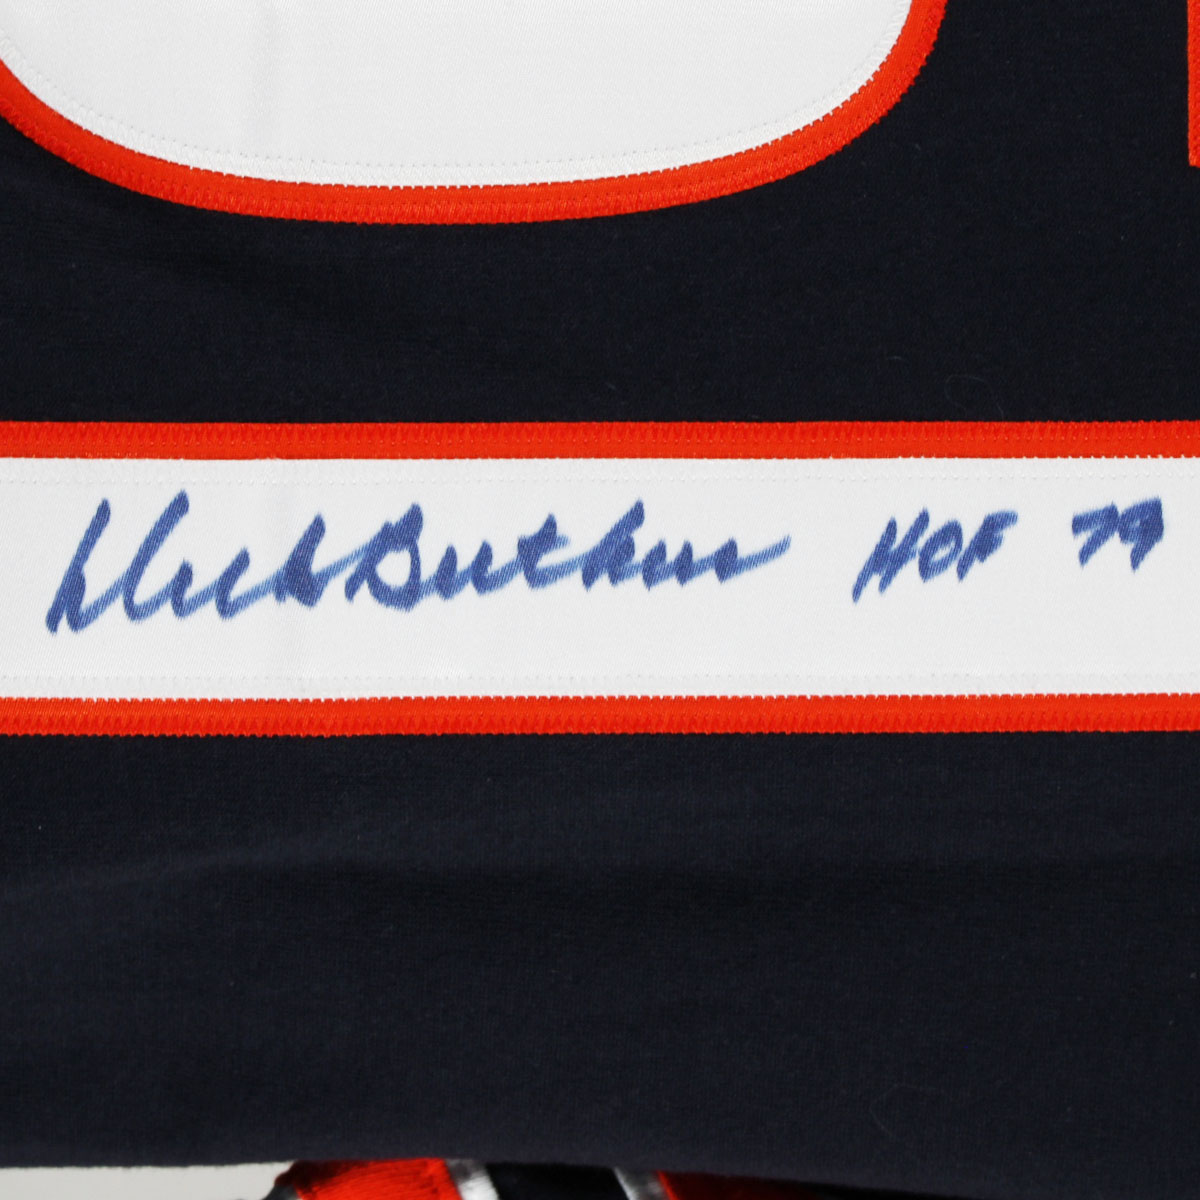 Dick Butkus HOF 79